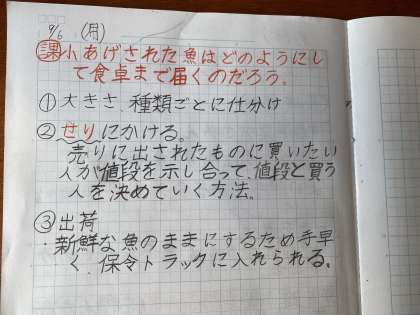 9/6 (月)
課 小あげされた魚はどのようにし
て食卓まで届くのだろう。
① 大きさ、種類ごとに仕分け
② せりにかける。
売りに出されたものに買いたい
人が値段を示し合って、値段と買う
人を決めていく方法。
③ 出荷
・新鮮な魚のままにするため手早
く、保令トラックに入れられる。